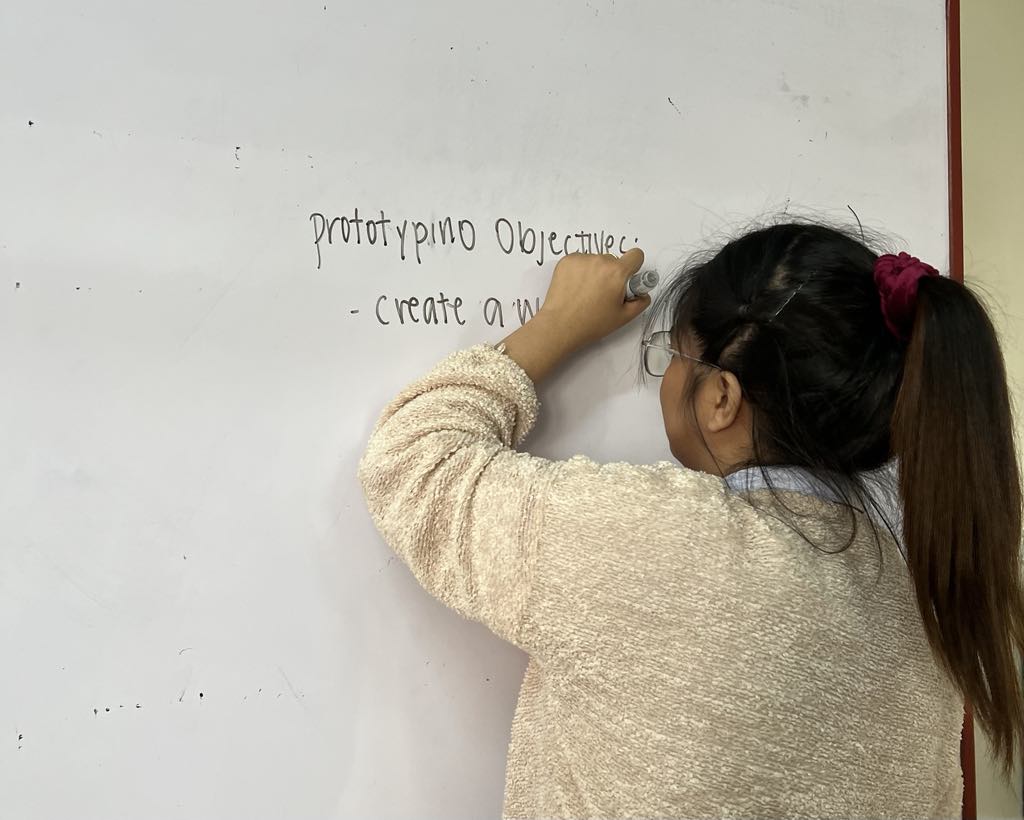 prototyping Objectives:
- create a